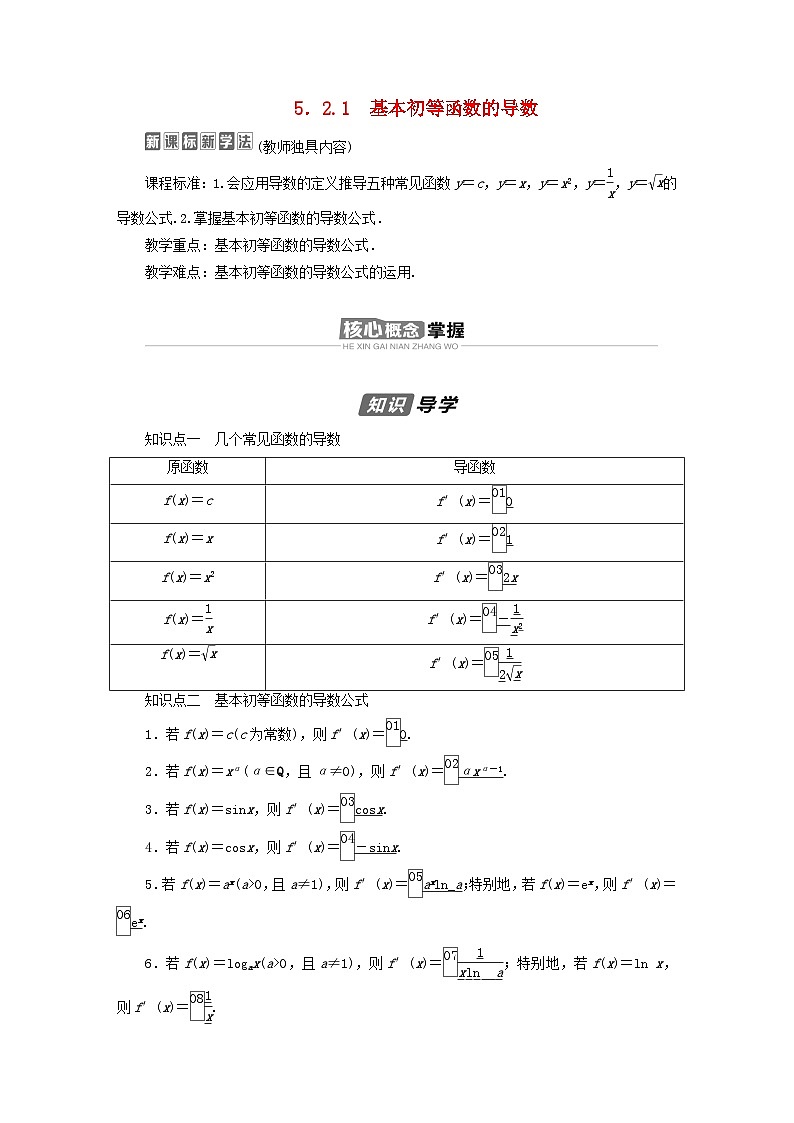 5．2.1　基本初等函数的导数
新课标新学法(教师独具内容)
课程标准：1.会应用导数的定义推导五种常见函数 y＝c，y＝x，y＝x²，y＝1/x，y＝√x的
导数公式.2.掌握基本初等函数的导数公式.
教学重点：基本初等函数的导数公式.
教学难点：基本初等函数的导数公式的运用.
核心概念掌握
HE XIN GAI NIAN ZHANG WO
知识导学
知识点一　几个常见函数的导数
原函数　导函数
f(x)＝c　f′(x)＝01 0
f(x)＝x　f′(x)＝02 1
f(x)＝x²　f′(x)＝03 2x
f(x)＝1/x　f′(x)＝04 －1/x²
f(x)＝√x　f′(x)＝05 1/(2√x)
知识点二　基本初等函数的导数公式
1．若 f(x)＝c(c 为常数)，则 f′(x)＝01 0.
2．若 f(x)＝xᵅ(α∈Q，且 α≠0)，则 f′(x)＝02 αxᵅ⁻¹.
3．若 f(x)＝sinx，则 f′(x)＝03 cosx.
4．若 f(x)＝cosx，则 f′(x)＝04 －sinx.
5.若 f(x)＝aˣ(a>0，且 a≠1)，则 f′(x)＝05 aˣln_a;特别地，若 f(x)＝eˣ，则 f′(x)＝
06 eˣ.
6．若 f(x)＝logₐx(a>0，且 a≠1)，则 f′(x)＝07 1/(xln__a)；特别地，若 f(x)＝ln x，
则 f′(x)＝08 1/x.